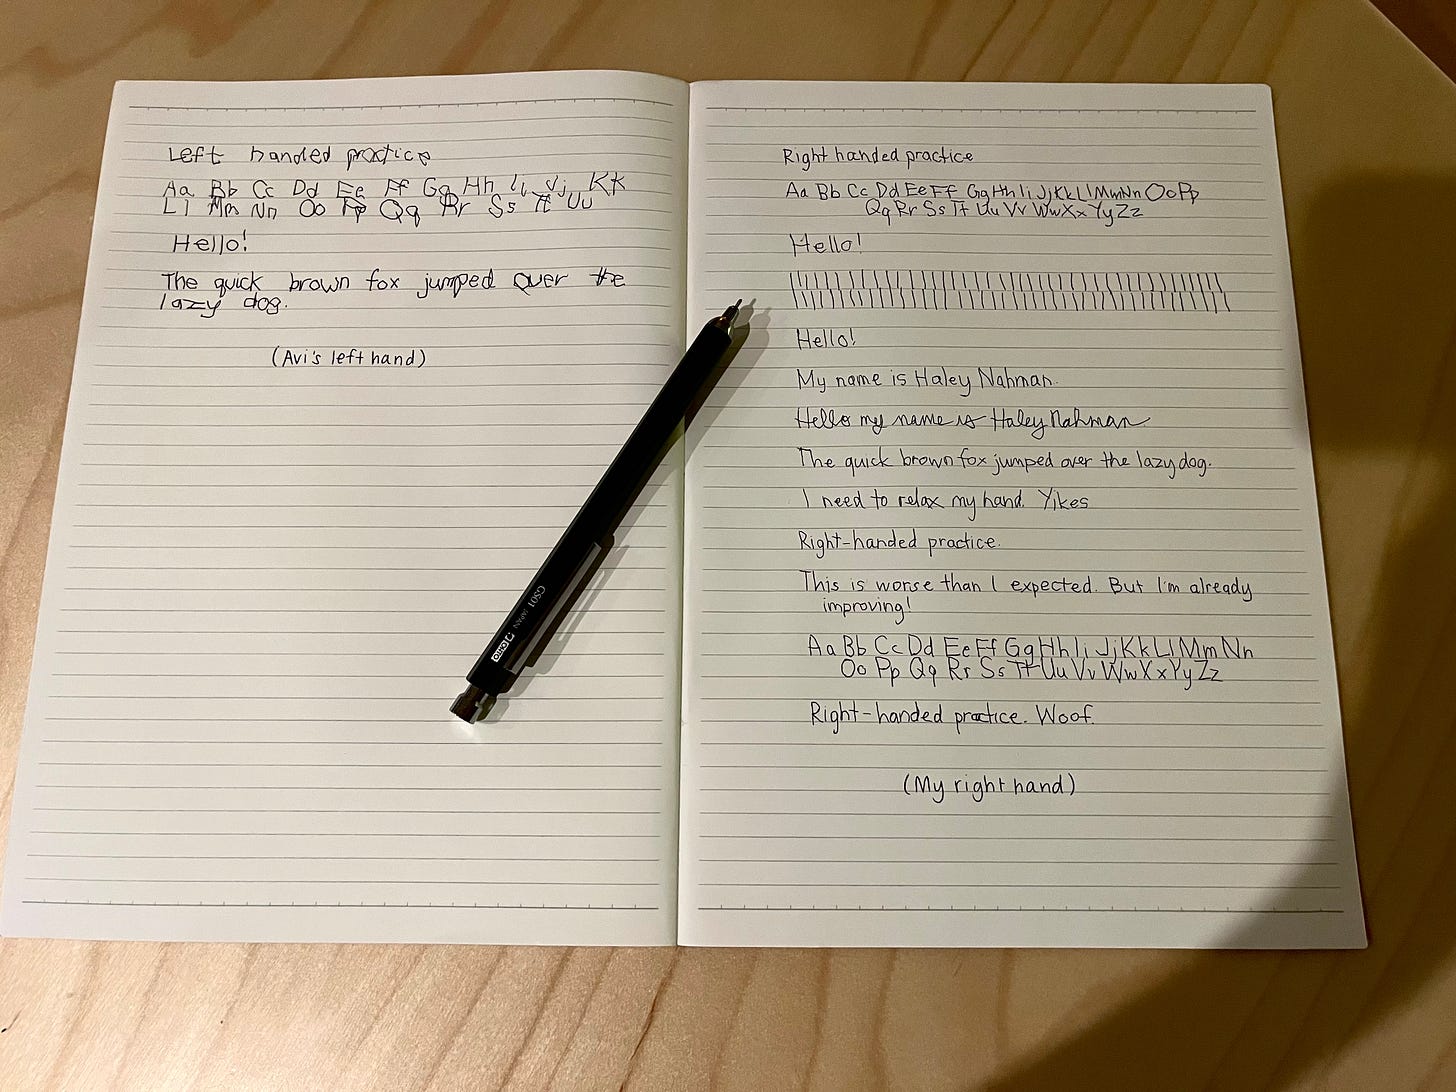 Left handed practice
Aa Bb Cc Dd Ee Ff Gg Hh Ii Jj Kk
Ll Mm Nn Oo Pp Qq Rr Ss Tt Uu
Hello!
The quick brown fox jumped over the
lazy dog.
(Avi's left hand)
OHTO GS01 JAPAN
Right handed practice
Aa Bb Cc Dd Ee Ff Gg Hh Ii Jj Kk Ll Mm Nn Oo Pp
Qq Rr Ss Tt Uu Vv Ww Xx Yy Zz
Hello!
Hello!
My name is Haley Nahman.
Hello my name is Haley Nahman
The quick brown fox jumped over the lazy dog.
I need to relax my hand. Yikes
Right-handed practice.
This is worse than I expected. But I'm already
improving!
Aa Bb Cc Dd Ee Ff Gg Hh Ii Jj Kk Ll Mm Nn
Oo Pp Qq Rr Ss Tt Uu Vv Ww Xx Yy Zz
Right-handed practice. Woof.
(My right hand)